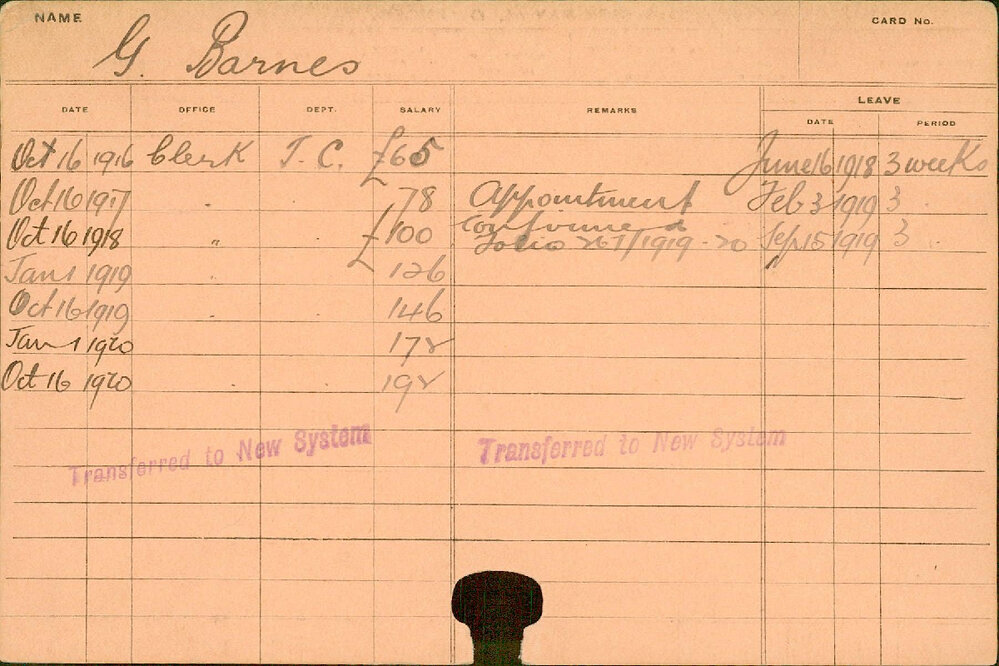 NAME
CARD No.
G. Barnes
DATE OFFICE DEPT. SALARY REMARKS LEAVE
DATE PERIOD
Oct 16 1916 Clerk T. C. £65 June 16 1918 3 weeks
Oct 16 1917 " 78 Appointment Feb 3 1919 3 "
Oct 16 1918 " £100 Confirmed Sep 15 1919 3 "
Folio 267/1919-20
Jan 1 1919 126
Oct 16 1919 " 146
Jan 1 1920 172
Oct 16 1920 " 192
Transferred to New System Transferred to New System